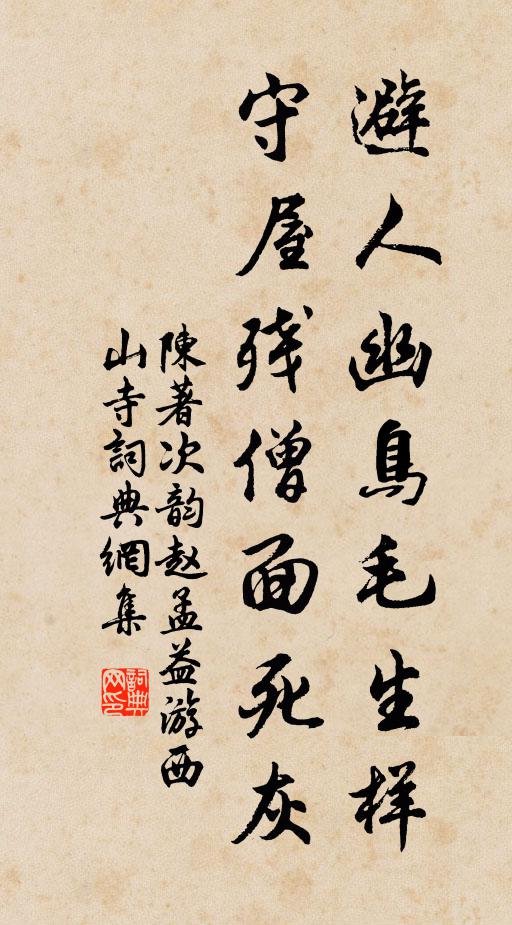 避人幽鳥毛生样
守屋残僧面死灰
陳著次韵赵孟益游西
山寺詞典網集
詞典
网印